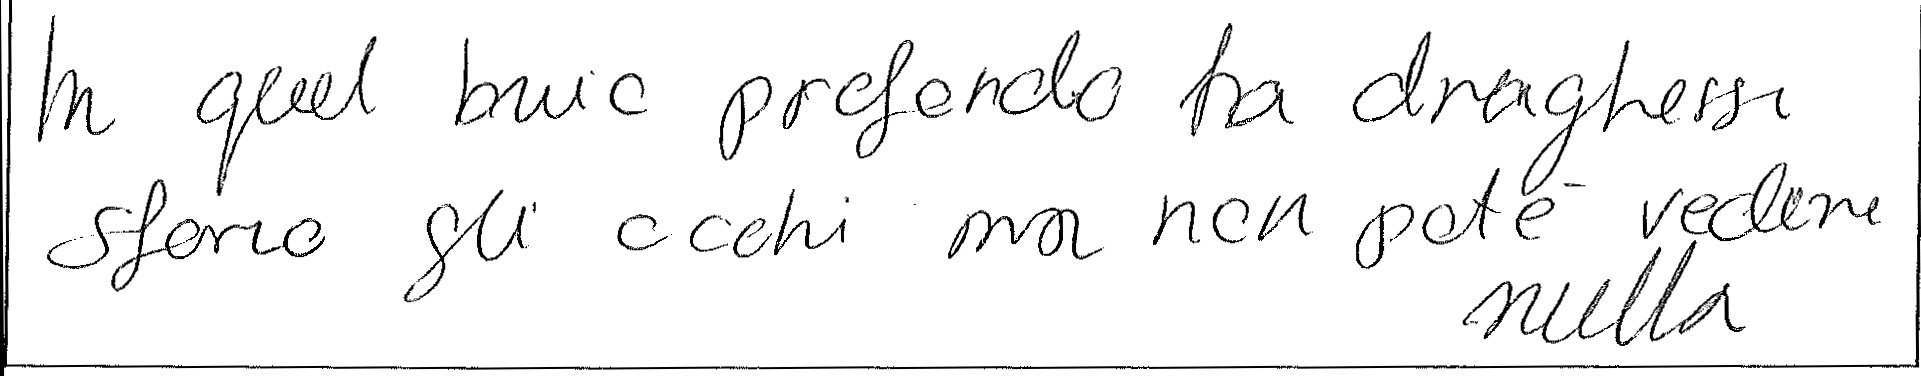 In quel buio profondo fra draghessi
sforzo gli occhi ma non poté vedere
nulla